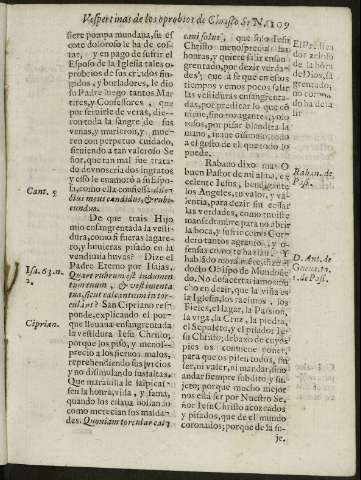 Vespertinas de los oprobios de Christo Sr N. 109
siere pompa mundana, su es
cote doloroso le ha de cos
tar, y en pago de sufrir el
Esposo de la Iglesia tales o-
probrios de sus criados fin-
gidos, y borladores, le dio
su Padre luego tantos Mar
tires, y Confessores, que
por seruirle de veras, die-
ron toda la sangre de sus
venas, y murieron, y
ron con perpetuo cuidado,
siruiendo a tan valeroso Se
ñor, que tan mal fue trata-
do de vnos criados ingratos
y esso le enamorò a su Espo-
sa, como ella confiessa:
Etus meus candidus, & rubi-
cundus.
De que trais Hijo
mio ensangrentada la vesti-
dura, como si fueras lagare-
ro, y huuieras pisado en la
vendimia huuas? Dize el
Padre Eterno por Isaias.
Quare rubrum est indumen
tum tuum, & vestimenta
tua, sicut calcantium in tor-
culari? San Cipriano res-
ponde, explicando el por-
que lleuaua ensangrentada
la vestidura Iesu Christo,
porque los pisò, y menos-
precio a los sieruos malos,
reprehendiendo sus vicios
y no dissimulando sus faltas.
Que marauilla le salpicas-
sen la honra, vida, y fama,
quando los estaua hollando
como merecian sus malda-
des: Quoniam torcular cal-
caui solus, que solo Iesu
Christo menosprecia las
honras, y quiere salir ensan
grentado, por dezir verda-
des; que a se que en estos
tiempos vemos pocos salir
las vestiduras ensangrenta-
das, por predicar lo que cõ
uiene, sino rozagantes, y olo
rosos, por pisar blandita la
mano, y traer
a el gusto de el que todo lo
puede.
Rabano dixo mas: O
buen Pastor de mi alma, ex
celente Iesus, bendigante
los Angeles, tu valor, y va-
lentia, para dezir sin cessar
las verdades, como tuuiste
mansedumbre para no abrir
la boca, y sufrir como Cor-
dero tantos agrauios, y o-
fensas en tu rostro? Y ya
hà hablado moralmente, el
docto Obispo de Mondoñe
do. No desacertariamos mu
cho en dezir, que la viña es
la Iglesia, los racimos, los
Fieles, el Lagar, la Passion,
la viga, la Cruz, la piedra,
el Sepulcro, y el pisador Ie-
su Christo; debaxo de cuyos
pies os conuiene poner,
para que os pise a todos, sin
ser, ni valer, ni mandar, sino
andar siempre subdito y su-
jeto; porque mucho mejor
nos estâ ser por Nuestro Se-
ñor Iesu Christo acozeados
y pisados, que de el mundo
coronados; porque de la so-
je.
Cant. 5
Isa. 63. n.
2.
Ciprian.
El Predica
dor zelolo
de la hõra
de Dios, sa
grentado,
Raban. de
Pass.
D. Ant. de
Gueuara.
t. de Pass.